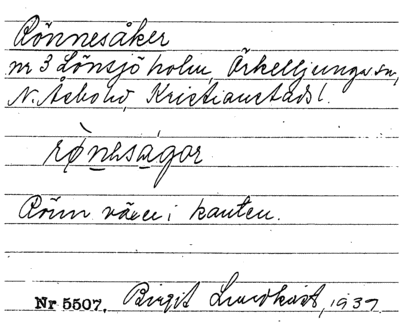 Rönnesåker
nr 3 Lönsjöholm, Örkelljunga sn,
N. Åsbo hd, Kristianstads l.
rø̀nesagor
Rönn växer i kanten.
Nr 5507. Birgit Lundkvist, 1937